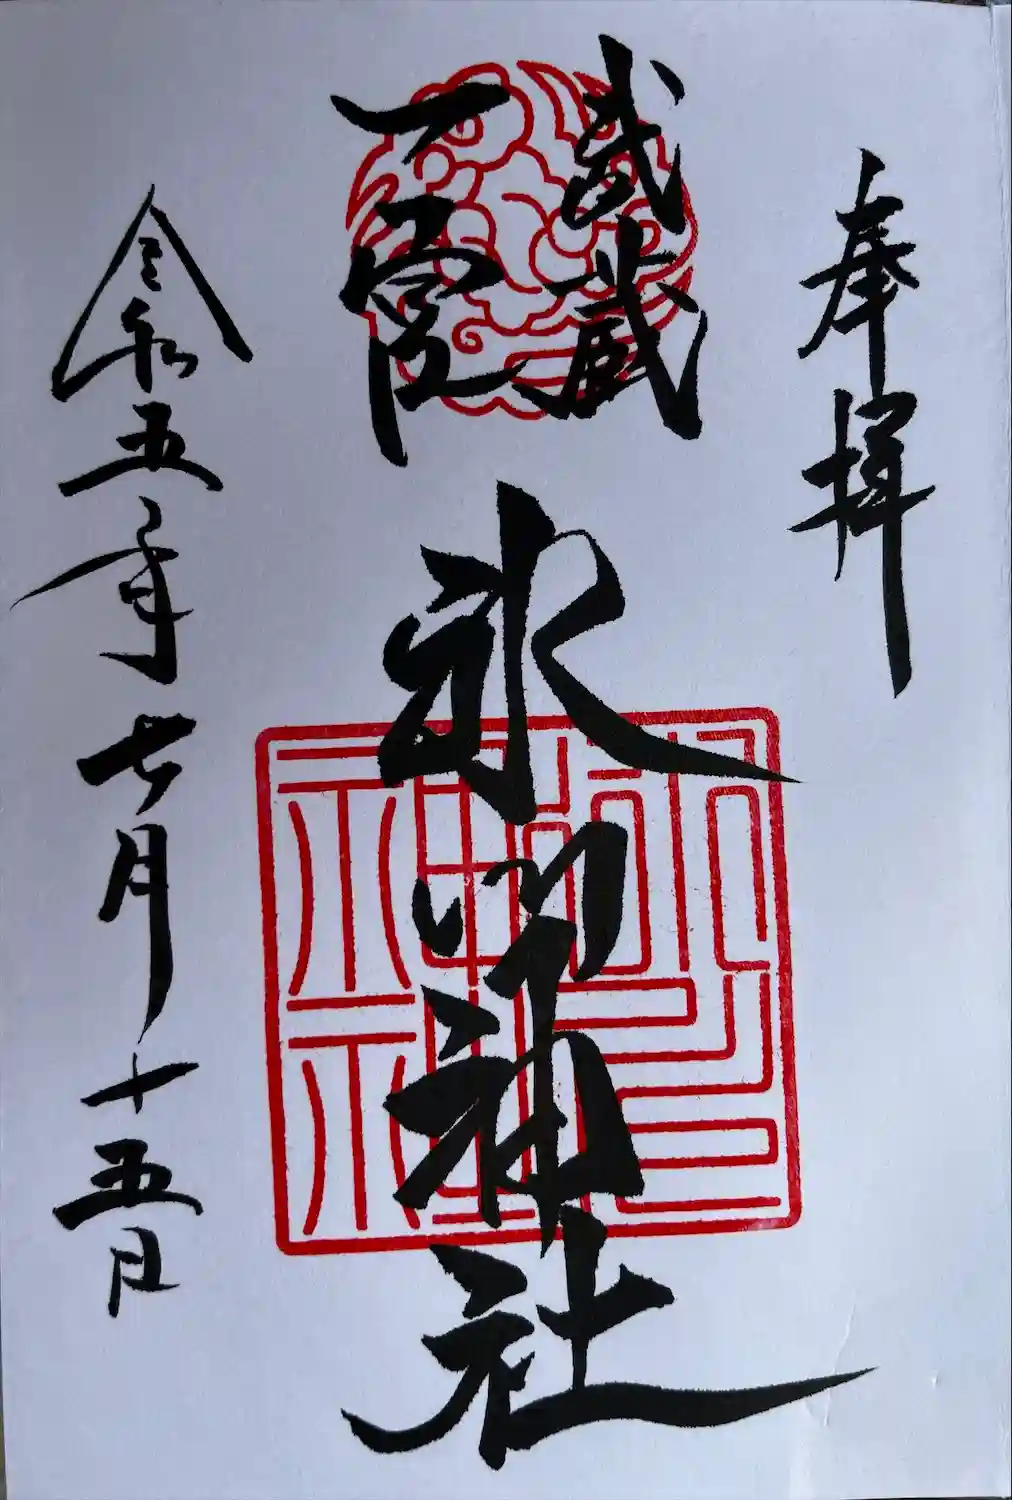 奉拝
武蔵
一宮
氷川神社
令和五年七月十五日